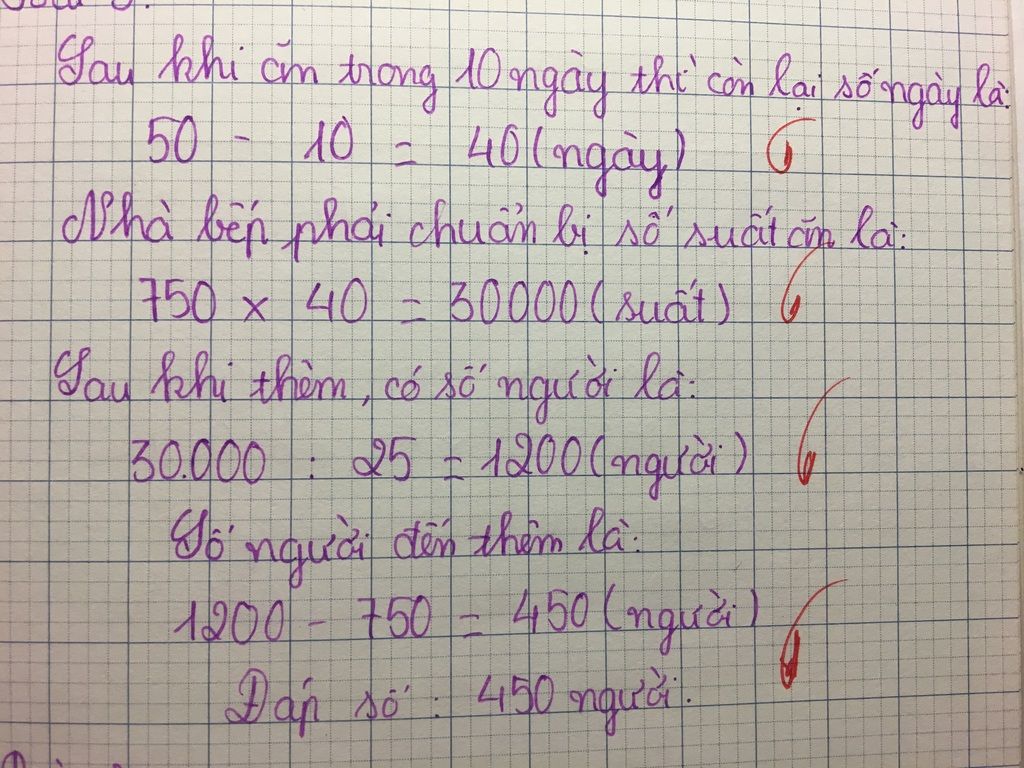 Sau khi ăn trong 10 ngày thì còn lại số ngày là:
50 - 10 = 40 (ngày)
Nhà bếp phải chuẩn bị số suất ăn là:
750 x 40 = 30000 (suất)
Sau khi thêm, có số người là:
30.000 : 25 = 1200 (người)
Số người đến thêm là:
1200 - 750 = 450 (người)
Đáp số : 450 người.